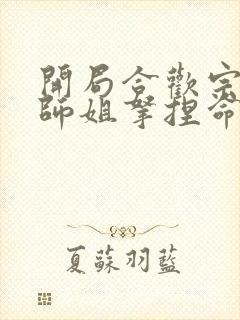 開局合歡宗
師姐拏捏命
夏蘇羽藍